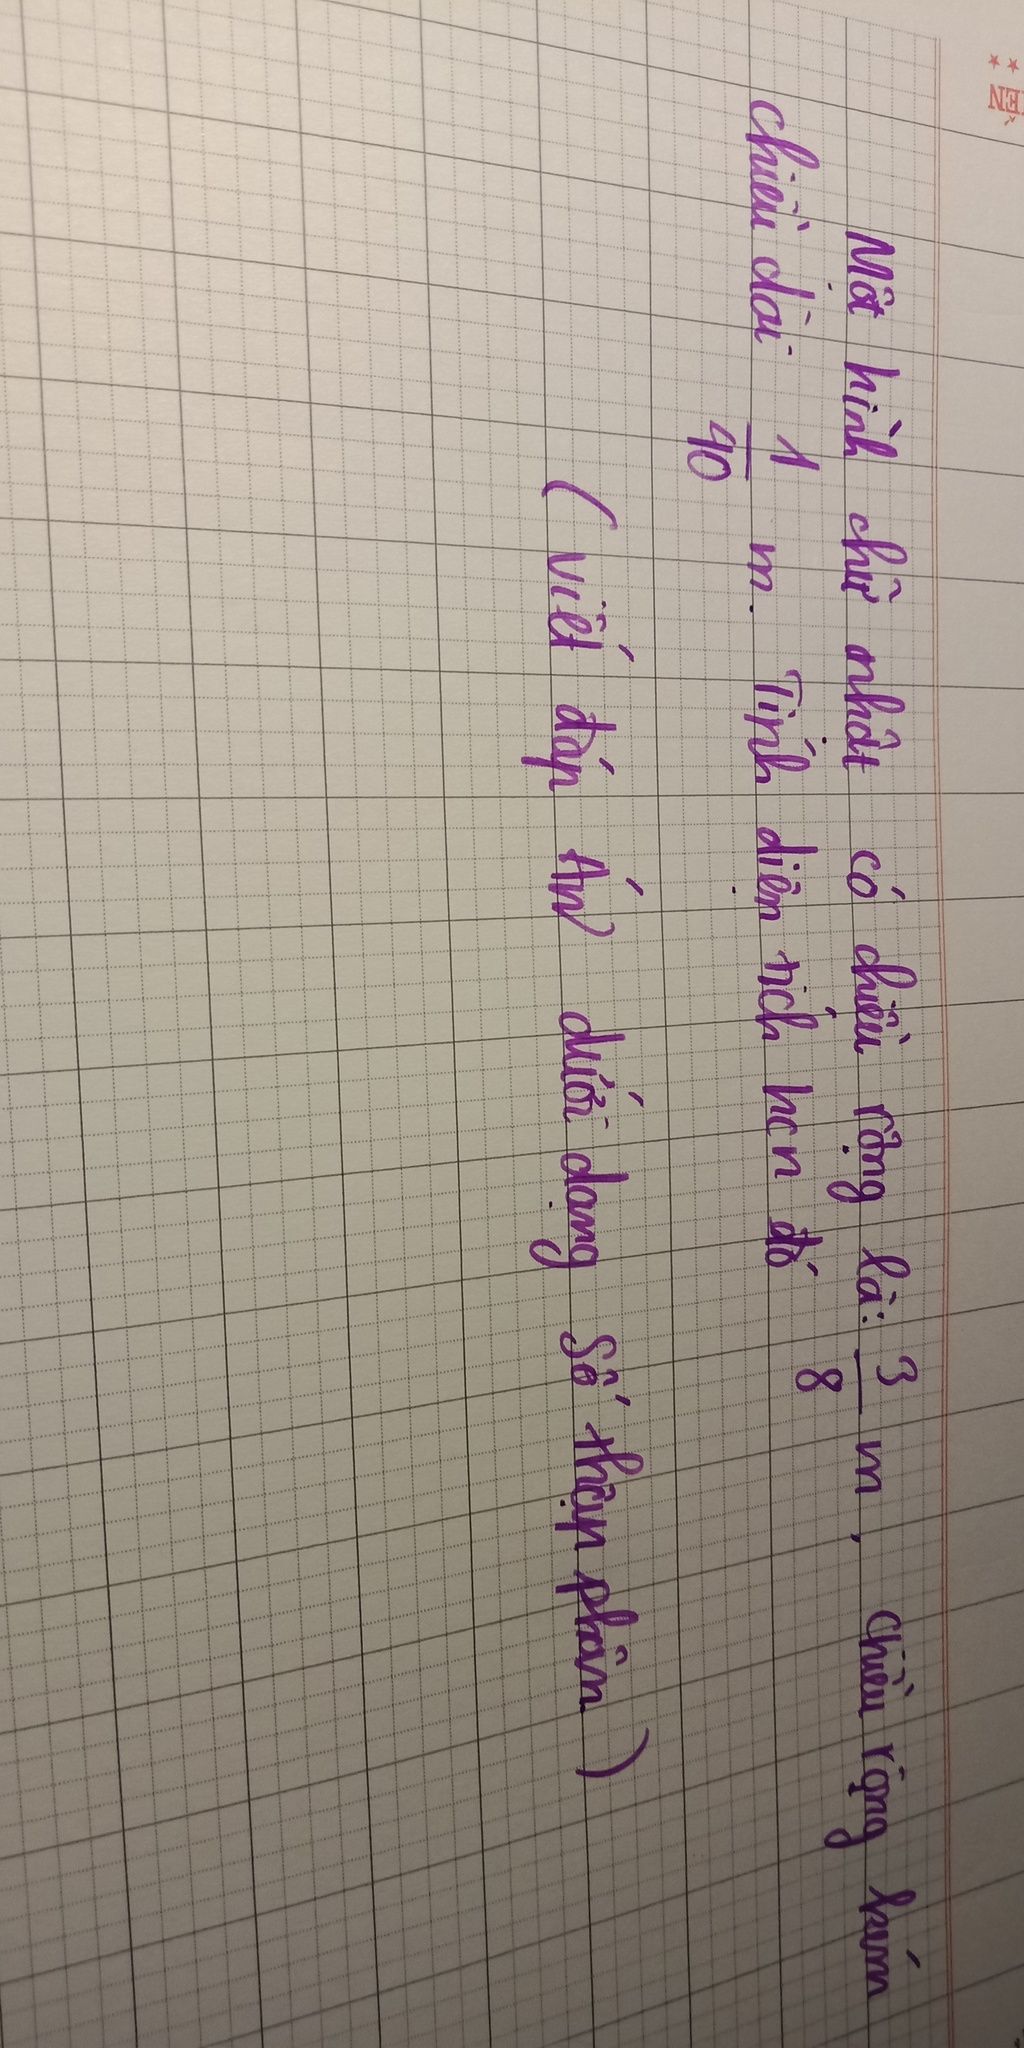 ÊN
Một hình chữ nhật có chiều rộng là: 3/8 m, chiều rộng kém
chiều dài 1/40 m. Tính diện tích hcn đó
(viết đáp án dưới dạng số thập phân)